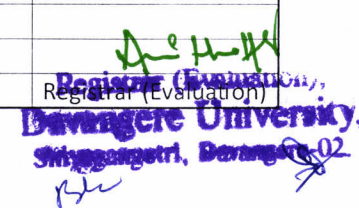 Registrar (Evaluation)
Registrar (Evaluation),
Davangere University,
Shivagangotri, Davangere-02